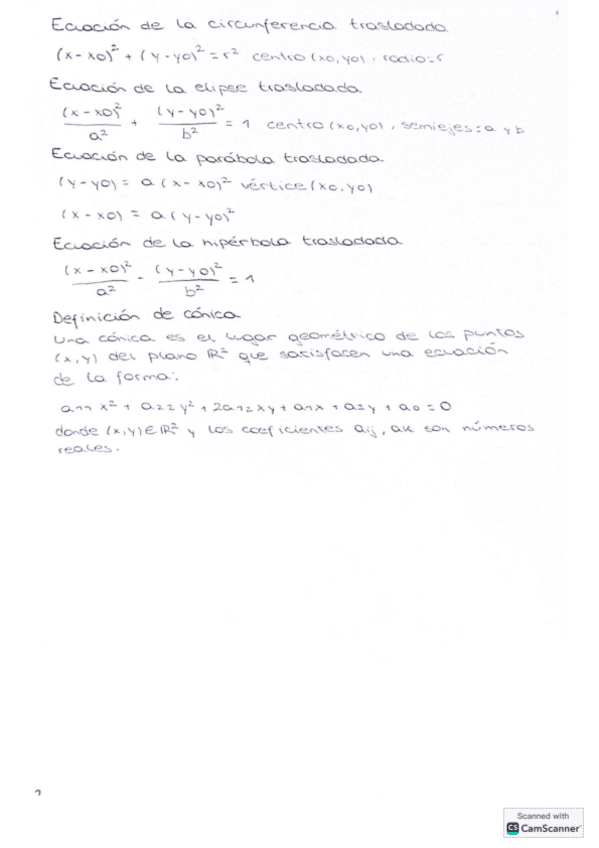 Ecuación de la circunferencia trasladada
(x-x0)² + (y-y0)² = r² centro (x0,y0) . radio=r
Ecuación de la elipse trasladada
(x-x0)²/a² + (y-y0)²/b² = 1 centro (x0,y0), semiejes: a y b
Ecuación de la parábola trasladada
(y-y0) = a(x-x0)² vértice (x0,y0)
(x-x0) = a(y-y0)²
Ecuación de la hipérbola trasladada
(x-x0)²/a² - (y-y0)²/b² = 1
Definición de cónica
Una cónica es el lugar geométrico de los puntos
(x,y) del plano ℝ² que satisfacen una ecuación
de la forma:
a11 x² + a22 y² + 2a12xy + a1x + a2y + a0 = 0
donde (x,y) ∈ ℝ² y los coeficientes aij, ak son números
reales.
2
Scanned with
CS CamScanner